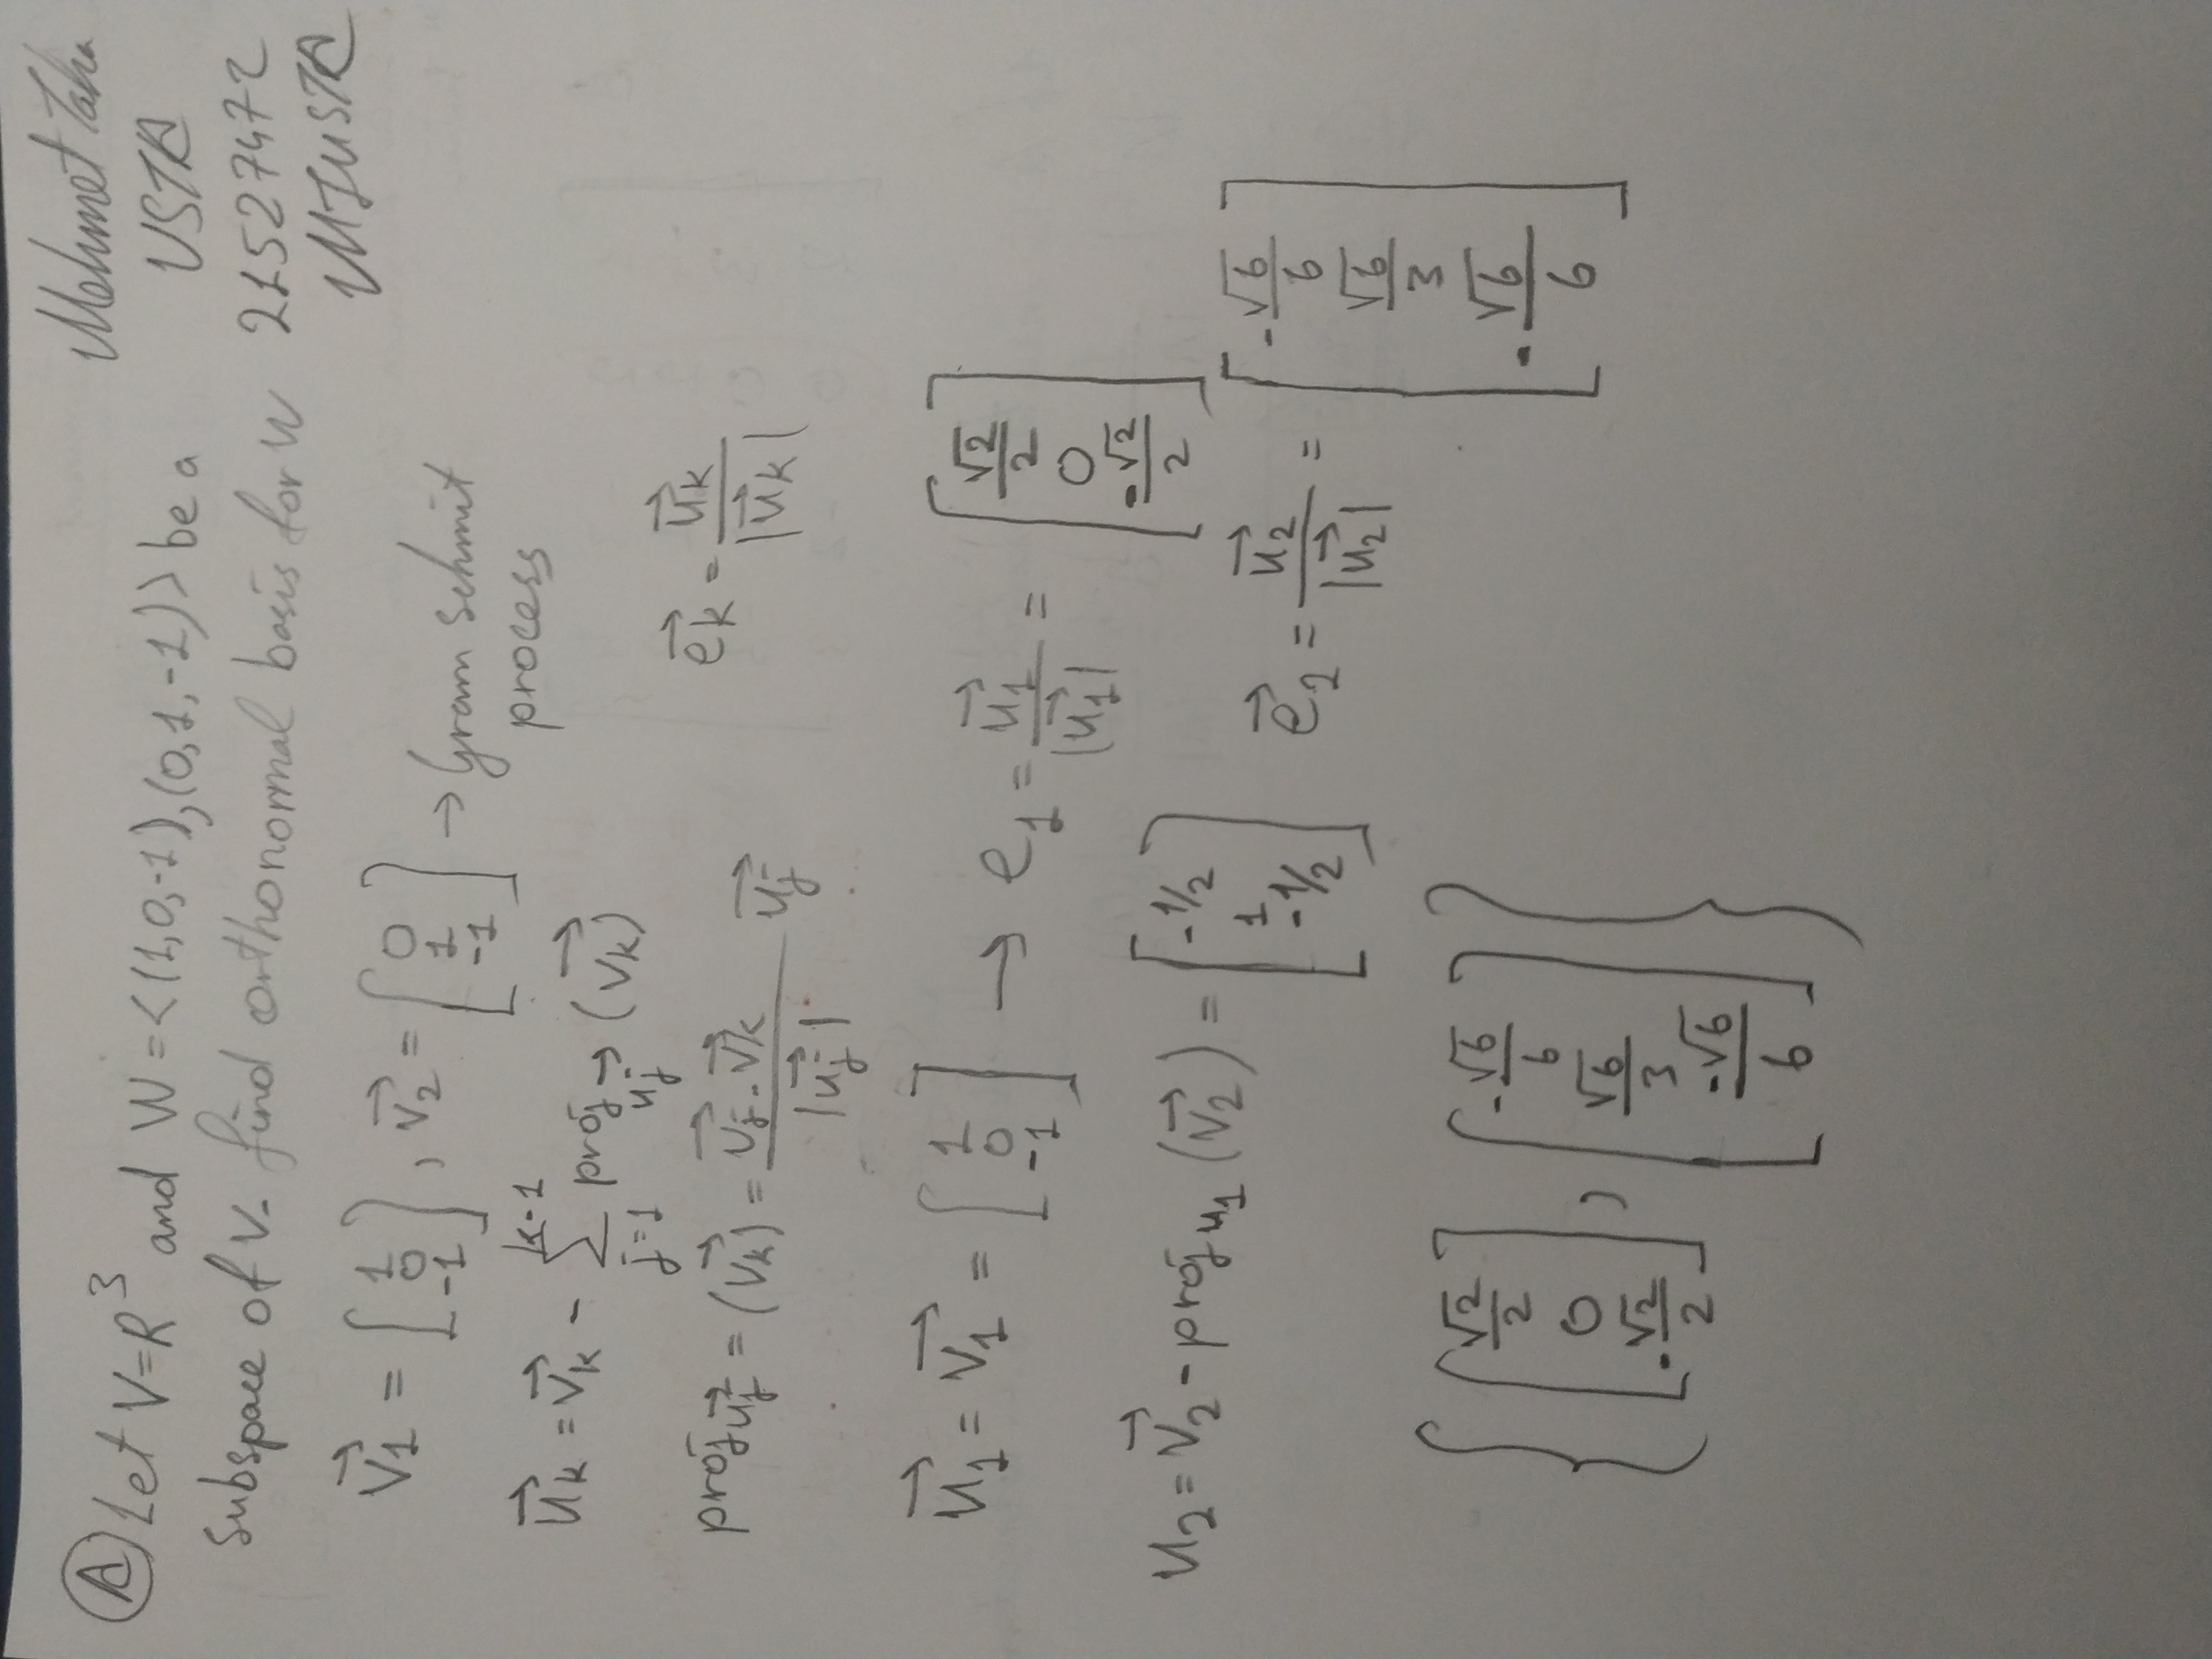 Ⓐ Let V=R³ and W = <(1,0,-1),(0,1,-1)> be a
subspace of V. find orthonormal basis for W
Mehmet Taha
USTA
21527472
MTUSTA
v⃗1 = [1 0 -1], v⃗2 = [0 1 -1] → Gram schmit
process
u⃗k = v⃗k - Σ k-1 j=1 proj u⃗j (v⃗k)
proj u⃗j = (v⃗k) = v⃗j . v⃗k / |u⃗j| u⃗j
e⃗k = u⃗k / |u⃗k|
u⃗1 = v⃗1 = [1 0 -1] → e1 = u⃗1 / |u⃗1| = [√2/2 0 -√2/2]
u2 = v⃗2 - proj u1 (v⃗2) = [-1/2 1 -1/2]
e⃗2 = u⃗2 / |u⃗2| = [-√6/6 √6/3 -√6/6]
{[√2/2 0 -√2/2], [-√6/6 √6/3 -√6/6]}